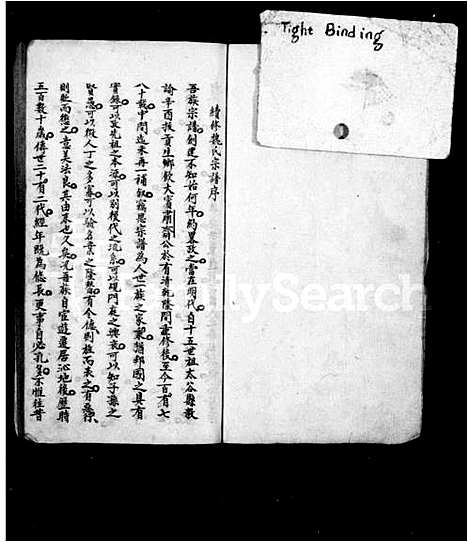 Tight Binding
續修魏氏宗譜序
吾族宗譜創建不知始何年約畧攷之當在明代自十五世祖太谷縣教
諭辛酉拔貢生鄉飲大賓肅齋公於有清乾隆間重修後至今百有七
八十載中間迄未再一補叙竊思宗譜為人世一族之家乘猶邦國之具有
實錄可以攷先祖之本源可以別後代之流系可以覘門庭之興衰可以知子孫之
賢愚可以徵人丁之多寡可以驗名業之隆替有令德則旌而表之有惡行
則貶而懲之意美法良其由來也久矣况吾族自宦遊遷居沁地後歷時
五百數十歲傳世二十有二代經年既為悠長更事自必孔多不惟往昔
FamilySearch